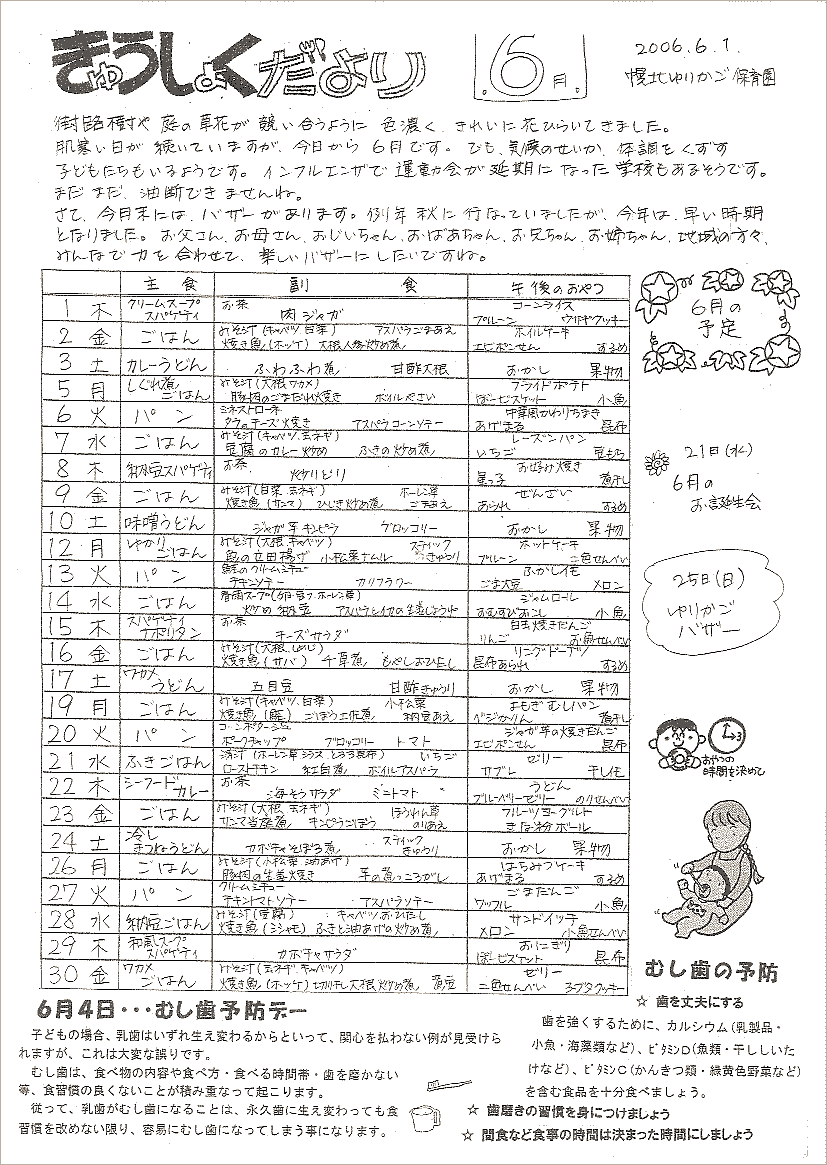 きゅうしょくだより
6月
2006.6.1.
幌北ゆりかご保育園
街路樹や庭の草花が競い合うように色濃く、きれいに花ひらいてきました。
肌寒い日が続いていますが、今日から6月です。でも、気候のせいか、体調をくずす
子どもたちもいるようです。インフルエンザで運動会が延期になった学校もあるそうです。
まだまだ、油断できませんね。
さて、今月末には、バザーがあります。例年秋に行なっていましたが、今年は、早い時期
となりました。お父さん、お母さん、おじいちゃん、おばあちゃん、お兄ちゃん、お姉ちゃん、地域の方々、
みんなで力を合わせて、楽しいバザーにしたいですね。
主食 副食 午後のおやつ
1 木 クリームスープスパゲティ お茶 肉ジャガ コーンライス プルーン ウサギクッキー
2 金 ごはん みそ汁(キャベツ、白菜) アスパラごまあえ 焼き魚(ホッケ) 大根人参炒め煮 ボイルケーキ エビポンせん するめ
3 土 カレーうどん ふわふわ煮 甘酢大根 おかし 果物
5 月 しぐれ煮ごはん みそ汁(大根、ワカメ) 豚肉のごまだれ焼き ボイルやさい フライドポテト ぱーびスケット 小魚
6 火 パン ミネストローネ タラのチーズ焼き アスパラコーンソテー 中華風かわりちまき あげまる 昆布
7 水 ごはん みそ汁(キャベツ、玉ネギ) 豆腐のカレー炒め ふきの炒め煮 レーズンパン いちご 豆もち
8 木 納豆スパゲティ お茶 炒りどり お好み焼き 黒っ子 煮干し
9 金 ごはん みそ汁(白菜、玉ネギ) ホーレン草ごまあえ 焼き魚(サンマ) ひじき炒め煮 ぜんざい あられ するめ
10 土 味噌うどん ジャガ芋キンピラ ブロッコリー おかし 果物
12 月 ゆかりごはん みそ汁(大根、キャベツ) スティックきゅうり 魚の立田揚げ 小松菜ナムル ホットケーキ プルーン 二色せんべい
13 火 パン 鮭のクリームシチュー チキンソテー カリフラワー ふかしイモ ごま大豆 メロン
14 水 ごはん 炒め納豆 アスパラとイカの生姜じょうゆ ジャムロール おむすびおこし 小魚
15 木 スパゲティナポリタン お茶 チーズサラダ 白玉焼きだんご りんご お魚せんべい
16 金 ごはん みそ汁(大根、しめじ) 焼き魚(サバ) 千草煮 もやしおひたし リングドーナツ 昆布あられ するめ
17 土 ワカメうどん 五目豆 甘酢きゅうり おかし 果物
19 月 ごはん みそ汁(キャベツ、白菜) 小松菜納豆あえ 焼き魚(鮭) ごぼう土佐煮 よもぎむしパン ベジかりん 煮干し
20 火 パン コーンポタージュ ポークチャップ ブロッコリー トマト ジャガ芋の焼きだんご エビポンせん 昆布
21 水 ふきごはん 清汁(ホーレン草、シラス、とろろ昆布) いちご ローストチキン 紅白煮 ボイルアスパラ ゼリー サブレ 干しイモ
22 木 シーフードカレー お茶 海そうサラダ ミニトマト うどん ブルーベリーゼリー のりせんべい
23 金 ごはん みそ汁(大根、玉ネギ) ほうれん草のりあえ サンマ当座煮 キンピラごぼう フルーツヨーグルト きな粉ボール
24 土 冷しきつねうどん カボチャそぼろ煮 スティックきゅうり おかし 果物
26 月 ごはん みそ汁(小松菜、油あげ) 豚肉の生姜焼き 芋の煮っころがし はちみつケーキ あげまる するめ
27 火 パン クリームシチュー チキントマトソテー アスパラソテー ごまだんご ワッフル 小魚
28 水 納豆ごはん みそ汁(豆腐) キャベツおひたし 焼き魚(シシャモ) ふきと油あげの炒め煮 サンドイッチ メロン 小魚せんべい
29 木 和風スープスパゲティ カボチャサラダ おにぎり ぱーびスケット 昆布
30 金 ワカメごはん みそ汁(玉ネギ、キャベツ) 焼き魚(ホッケ) 切り干し大根炒め煮 ゼリー 二色せんべい
6月の
予定
21日(水)
6月の
お誕生会
25日(日)
ゆりかご
バザー
おやつの
時間を決めて
むし歯の予防
☆ 歯を丈夫にする
歯を強くするために、カルシウム(乳製品・
小魚・海藻類など)、ビタミンD(魚類・干ししいた
けなど)、ビタミンC(かんきつ類・緑黄色野菜など)
を含む食品を十分食べましょう。
☆ 歯磨きの習慣を身につけましょう
☆ 間食など食事の時間は決まった時間にしましょう
6月4日・・・むし歯予防デー
子どもの場合、乳歯はいずれ生え変わるからといって、関心を払わない例が見受けら
れますが、これは大変な誤りです。
むし歯は、食べ物の内容や食べ方・食べる時間帯・歯を磨かない
等、食習慣の良くないことが積み重なって起こります。
従って、乳歯がむし歯になることは、永久歯に生え変わっても食
習慣を改めない限り、容易にむし歯になってしまう事になります。